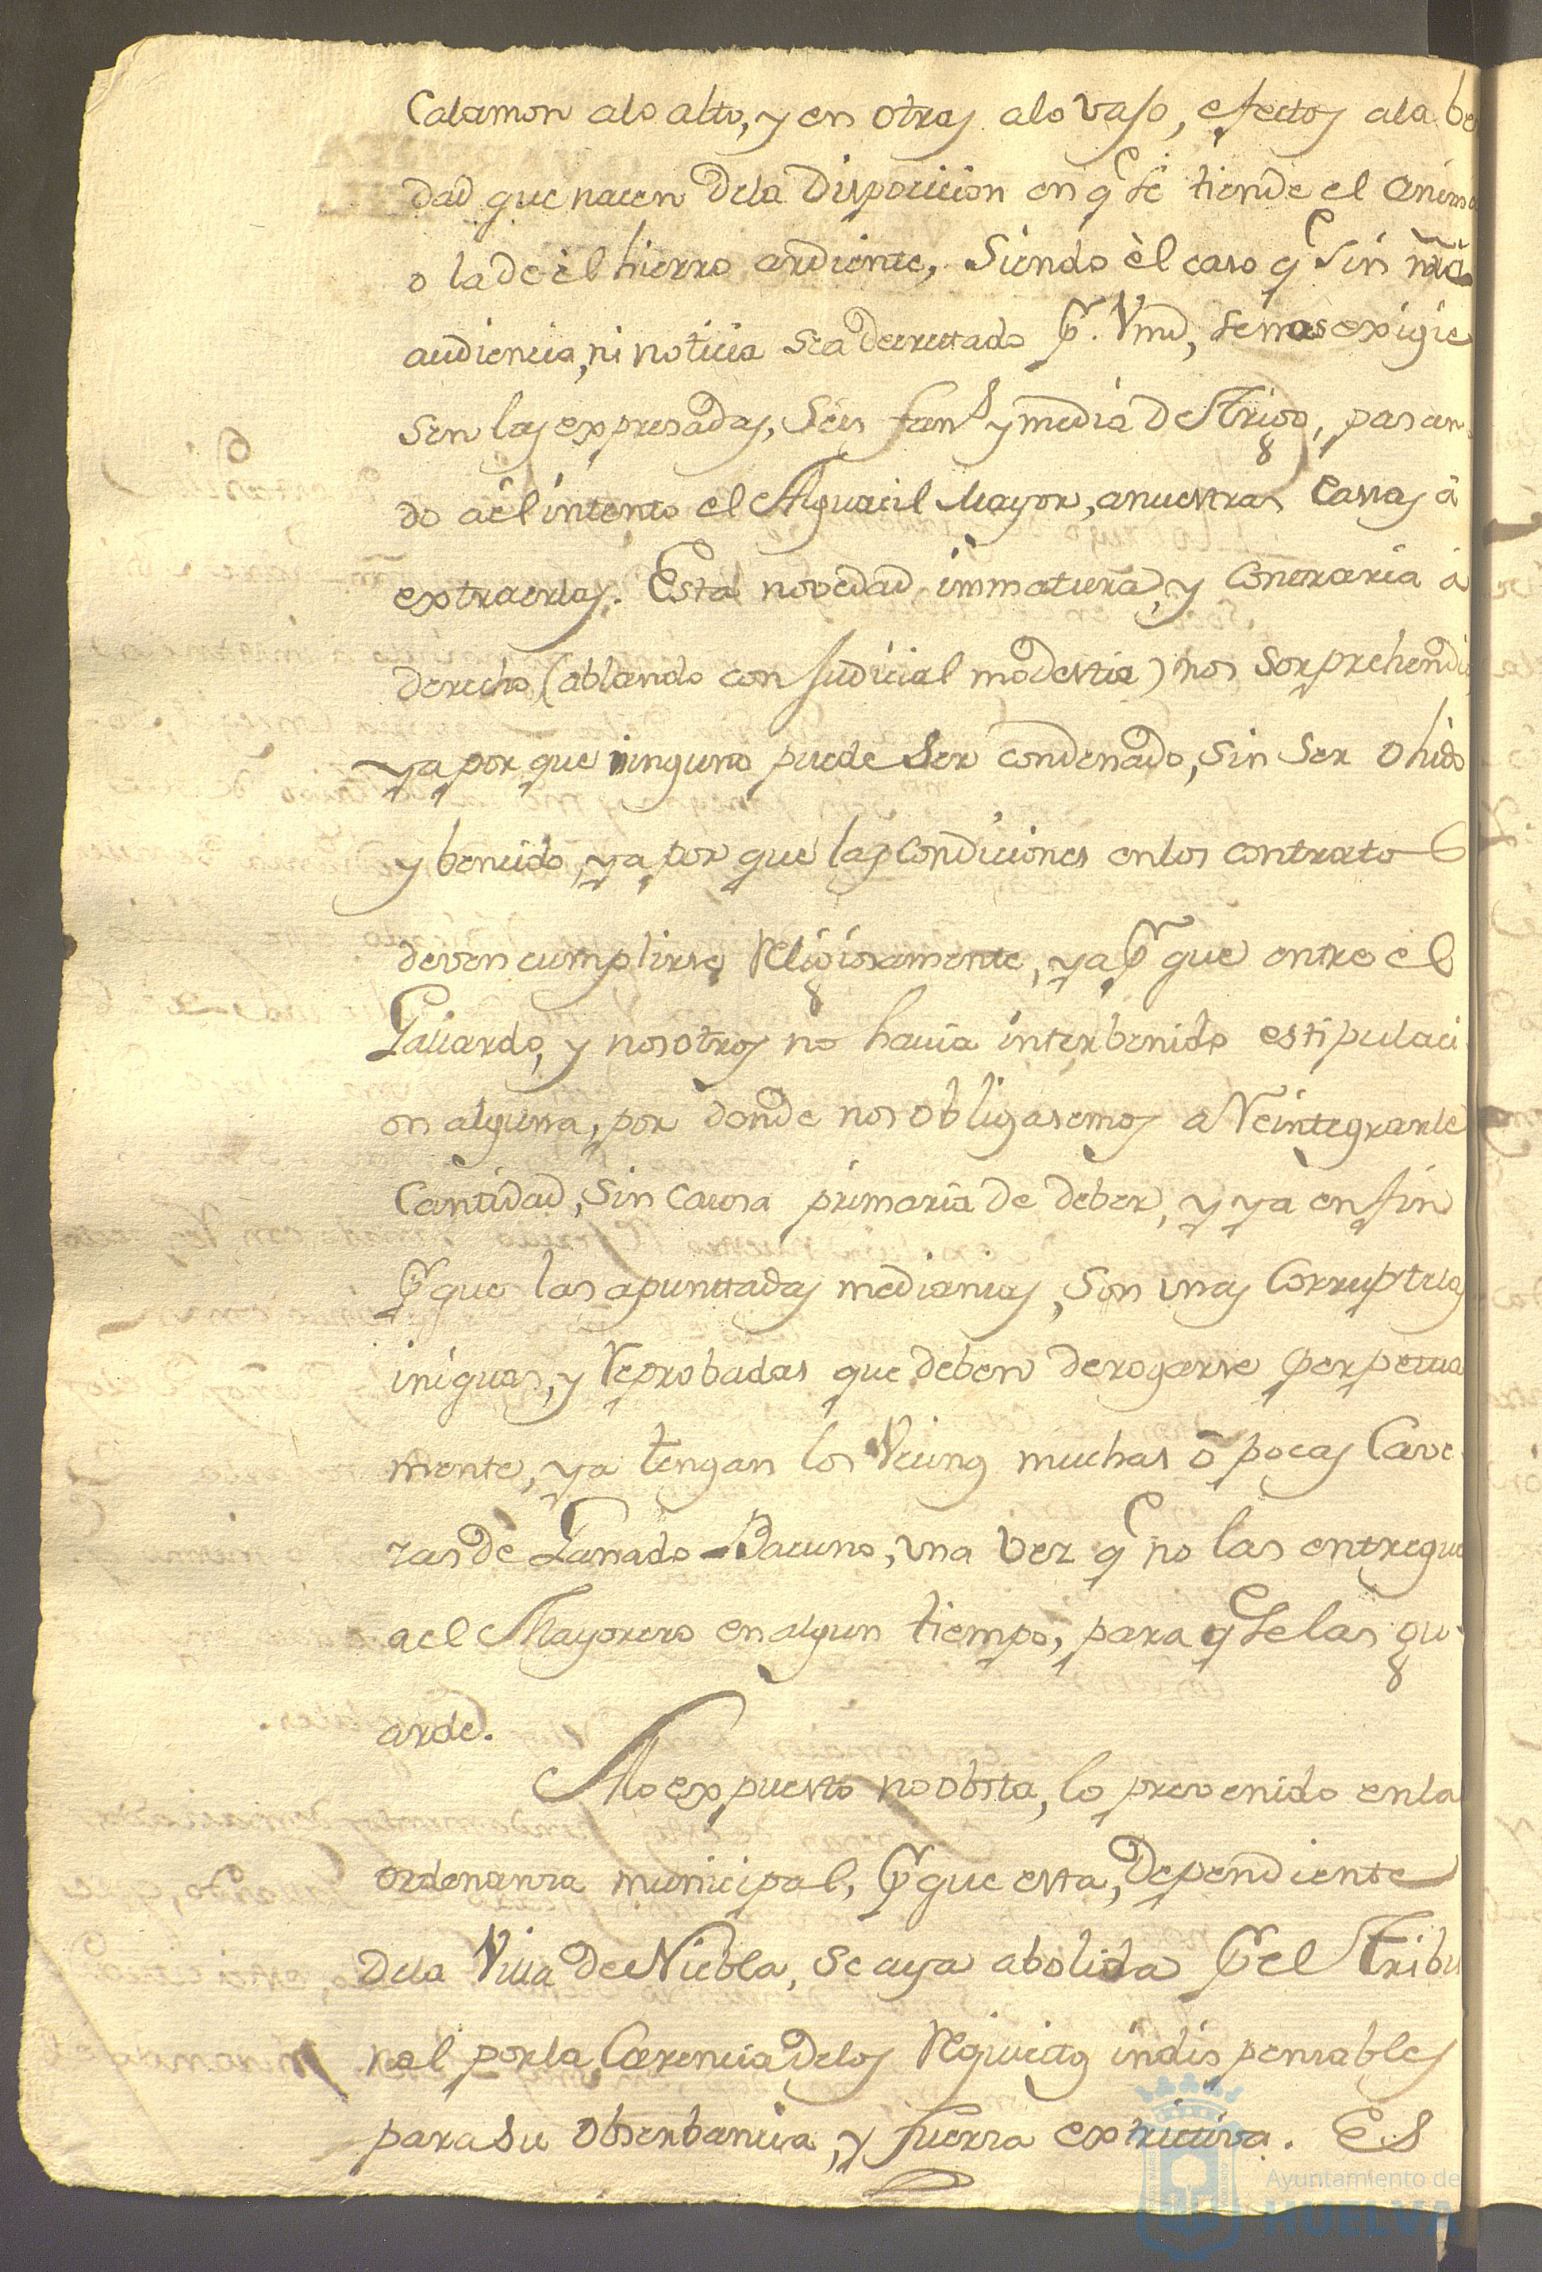 Calamon alo alto, y en otras alo vaso, efectos ala be
dad que nacen dela Disposicion en q se tiende el anima
o la de èl hierro ardiente, Siendo èl caso q sin nrã
audiencia, ni noticia sea decrettado pr. Vmd, se nos exigie
sen las expresadas, Séis fans y media de Trigo, pasan
do àel intento el Alguacil Mayor, anuestras Casas â
extraerlas. Esta novedad immatura, y Contraria â
derecho, (ablando con Judicial modestia) nos Sorprehendio
ya por que ninguno puede Ser condenado, sin Ser ohido
y bencido, ya por que las condiciones enlos contratos
deven cumplirse Religiosamente, ya pr que entre el
Gallardo, y nosotros no havia interbenido estipulaci
on alguna, por donde nos obligasemos a Reintegrarle
Cantidad, sin causa primaria de deber, y ya en fin
pr que las apunttadas medianias, Son unas Corruptelas
iniguas, y Reprobadas que deben derogarse perpetua
mente, ya tengan los Vecinos muchas ô pocas Cave
zas de Ganado Bacuno, una vez q no las entregue
ael Mayorero en algun tiempo, para q se las gu-
arde.
Alo expuesto no obsta, lo prevenido en la
ordenanza municipal, pr que esta, dependiente
dela Villa de Niebla, se aya abolida pr el Tribu
nal por la Carencia delos Requicitos indispensables
para su Obserbancia, y fuerza extrictiva. Es
Ayuntamiento de
HUELVA